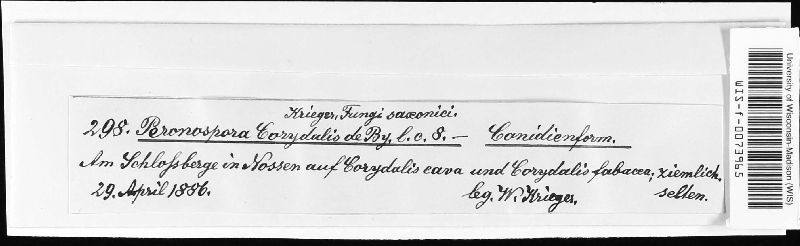 Krieger, Fungi saxonici.
298. Peronospora Corydalis de By. l. c. 8. — Conidienform.
Am Schloßberge in Nossen auf Corydalis cava und Corydalis fabacea, ziemlich selten.
29. April 1886. leg. W. Krieger.
University of Wisconsin-Madison (WIS)
WIS-f-0073965